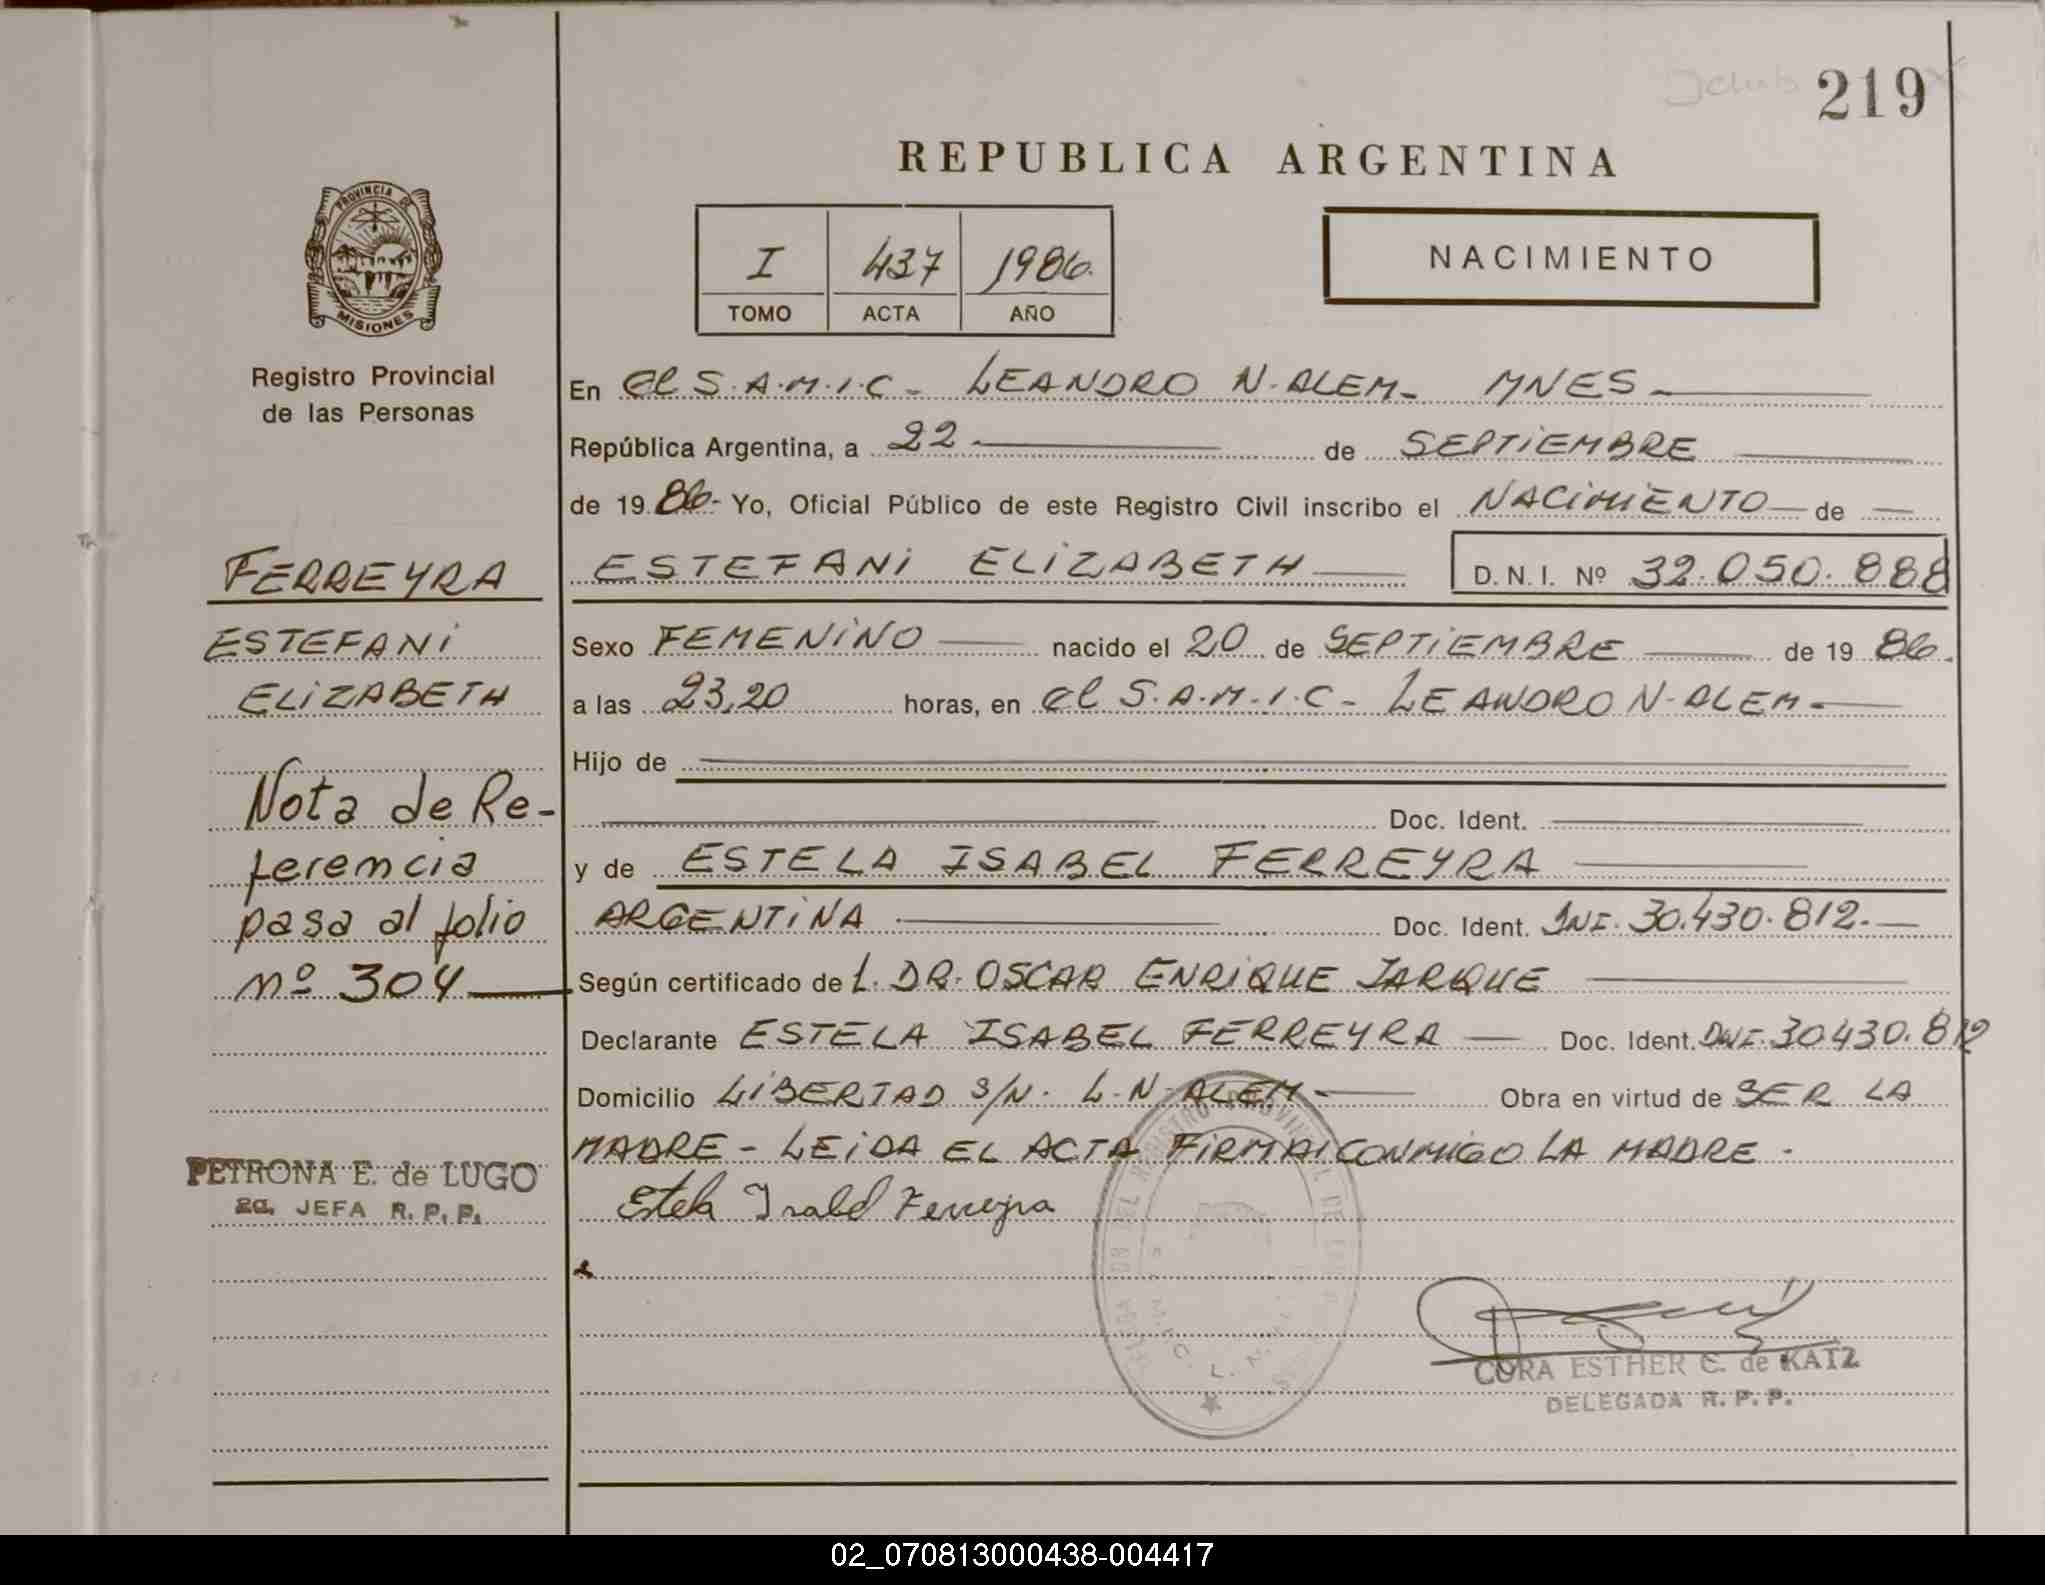 219
REPUBLICA ARGENTINA
I 437 1986.
TOMO ACTA AÑO
NACIMIENTO
PROVINCIA DE
MISIONES
Registro Provincial
de las Personas
FERREYRA
ESTEFANI
ELIZABETH
Nota de Re-
ferencia
pasa al folio
nº 304
PETRONA E. de LUGO
2a. JEFA R. P. P.
En el S.A.M.I.C - LEANDRO N. ALEM - MNES -
República Argentina, a 22 - de SEPTIEMBRE
de 19 86- Yo, Oficial Público de este Registro Civil inscribo el NACIMIENTO de
ESTEFANI ELIZABETH D.N.I. Nº 32.050.888
Sexo FEMENINO nacido el 20 de SEPTIEMBRE de 19 86.
a las 23,20 horas, en el S.A.M.I.C - LEANDRO N. ALEM -
Hijo de
Doc. Ident.
y de ESTELA ISABEL FERREYRA
ARGENTINA Doc. Ident. DNI. 30.430.812.-
Según certificado de L. DR. OSCAR ENRIQUE JARQUE
Declarante ESTELA ISABEL FERREYRA Doc. Ident. DNI. 30.430.812
Domicilio LIBERTAD S/N. L.N. ALEM - Obra en virtud de SER LA
MADRE - LEIDA EL ACTA FIRMA CONMIGO LA MADRE -
Estela Isabel Ferreyra
CORA ESTHER C. de KATZ
DELEGADA R. P. P.
02_070813000438-004417